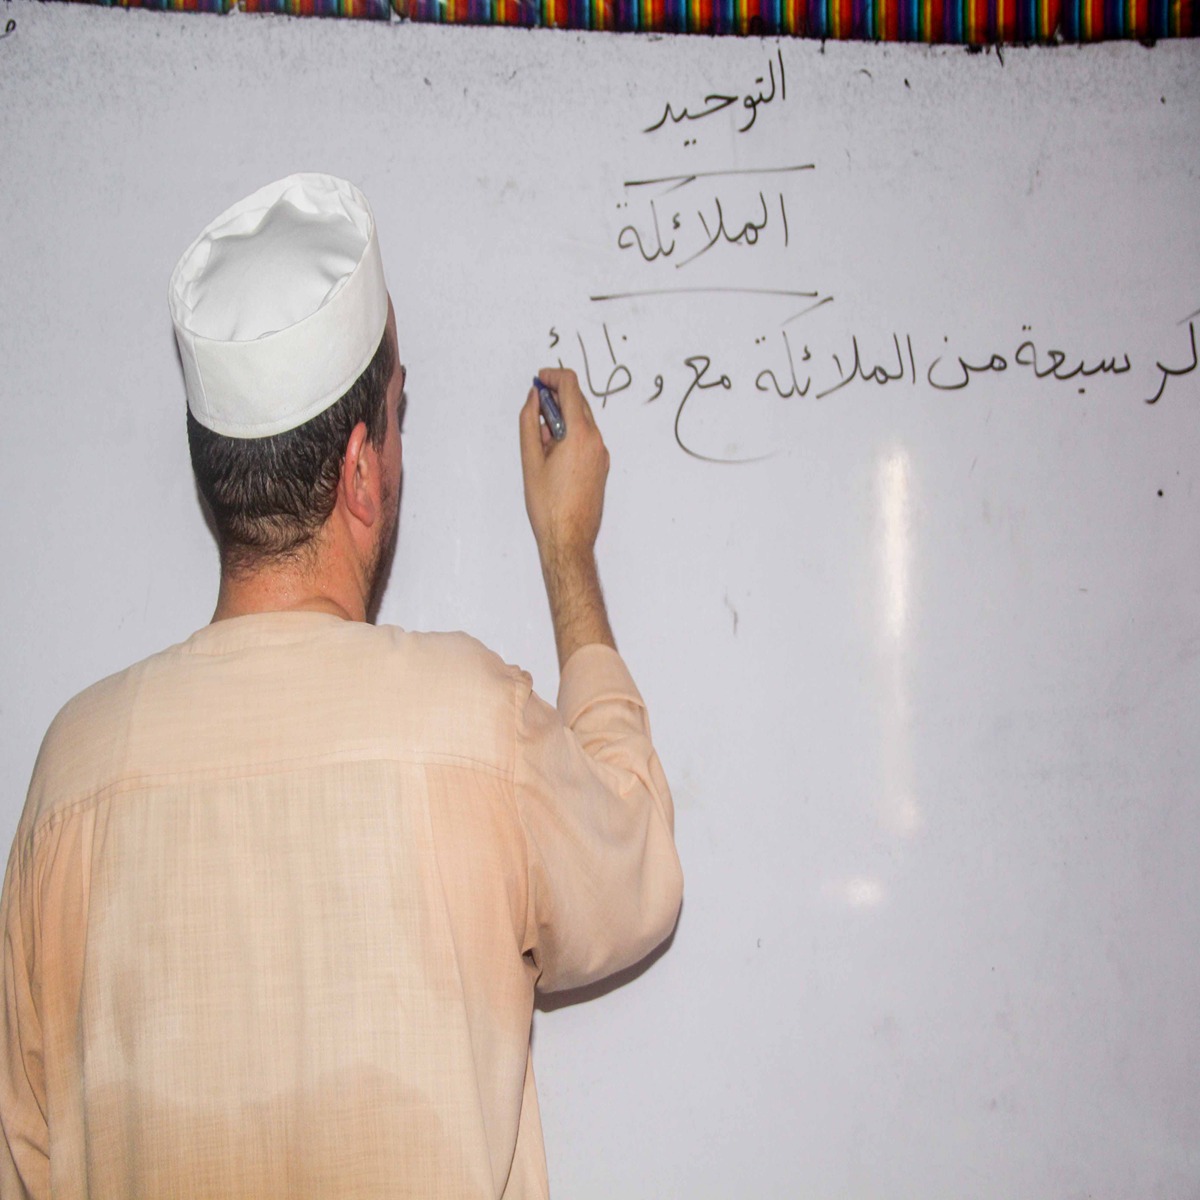 التوحيد
الملائكة
كر سبعة من الملائكة مع وظائ